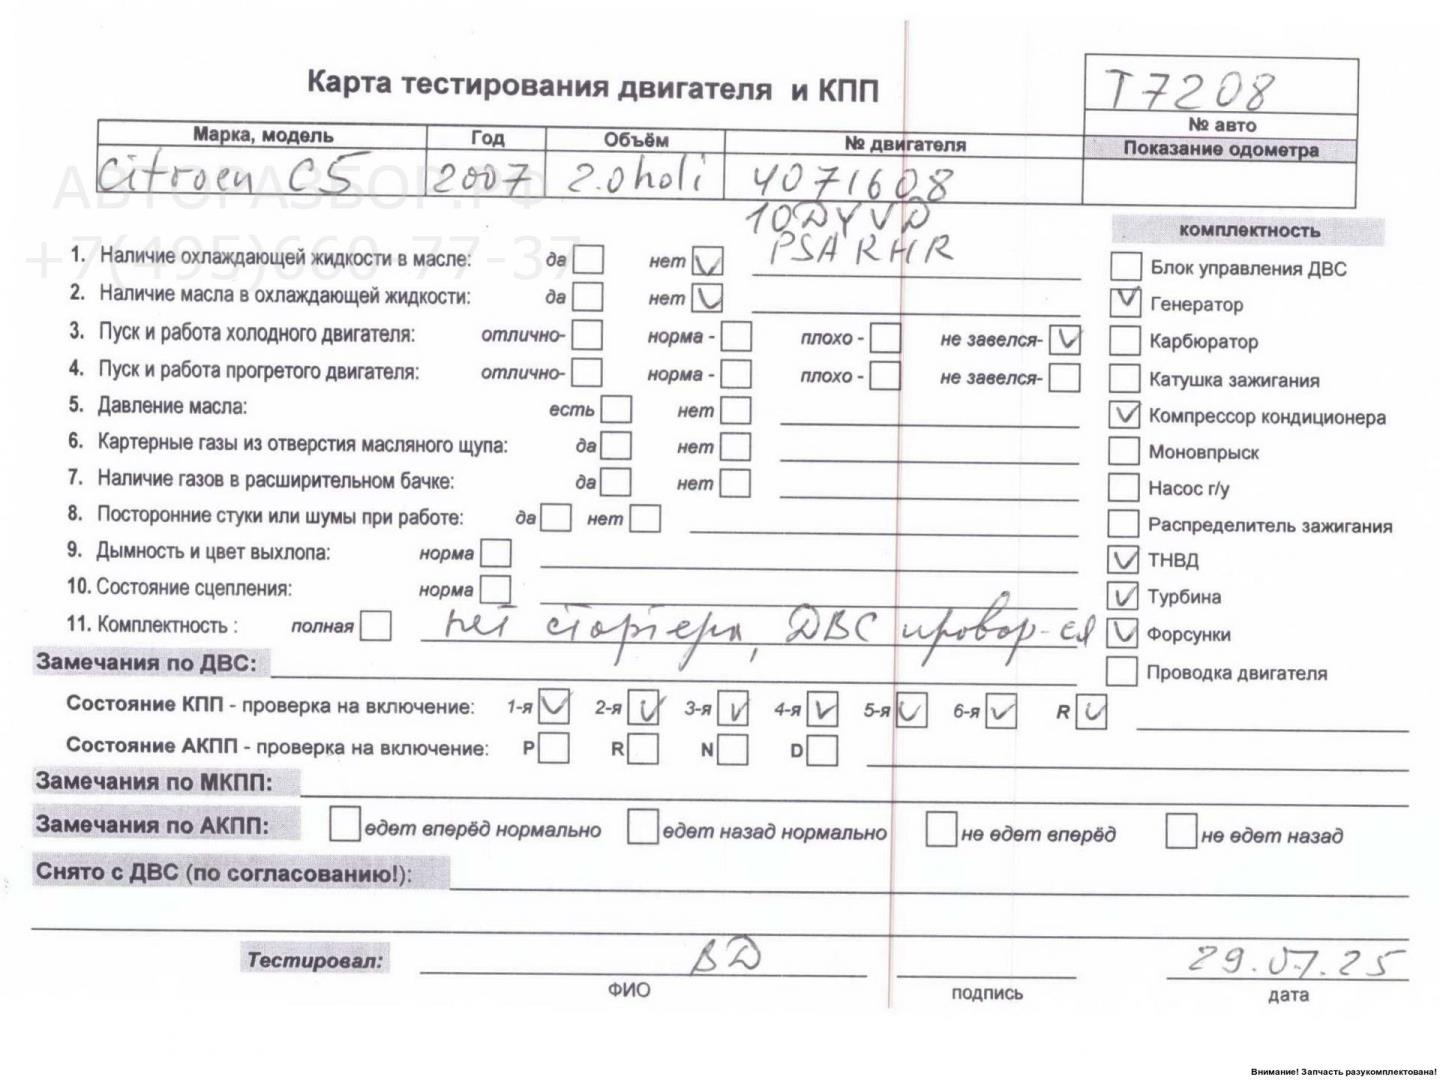 Карта тестирования двигателя и КПП
Т7208
№ авто
Показание одометра
Марка, модель Год Объём № двигателя
Citroen C5 2007 2.0 hdi 4071608
10DYVD
PSA RHR
АВТОРАЗБОР.РФ
+7(495)660-77-37
комплектность
1. Наличие охлаждающей жидкости в масле: да нет
Блок управления ДВС
2. Наличие масла в охлаждающей жидкости: да нет
Генератор
3. Пуск и работа холодного двигателя: отлично- норма - плохо - не завелся-
Карбюратор
4. Пуск и работа прогретого двигателя: отлично- норма - плохо - не завелся-
Катушка зажигания
5. Давление масла: есть нет
Компрессор кондиционера
6. Картерные газы из отверстия масляного щупа: да нет
Моновпрыск
7. Наличие газов в расширительном бачке: да нет
Насос г/у
8. Посторонние стуки или шумы при работе: да нет
Распределитель зажигания
9. Дымность и цвет выхлопа: норма
ТНВД
10. Состояние сцепления: норма
Турбина
11. Комплектность : полная нет стартера, ДВС провор-ся
Форсунки
Замечания по ДВС:
Проводка двигателя
Состояние КПП - проверка на включение: 1-я 2-я 3-я 4-я 5-я 6-я R
Состояние АКПП - проверка на включение: P R N D
Замечания по МКПП:
Замечания по АКПП: едет вперёд нормально едет назад нормально не едет вперёд не едет назад
Снято с ДВС (по согласованию!):
Тестировал: ВД 29.07.25
ФИО подпись дата
Внимание! Запчасть разукомплектована!